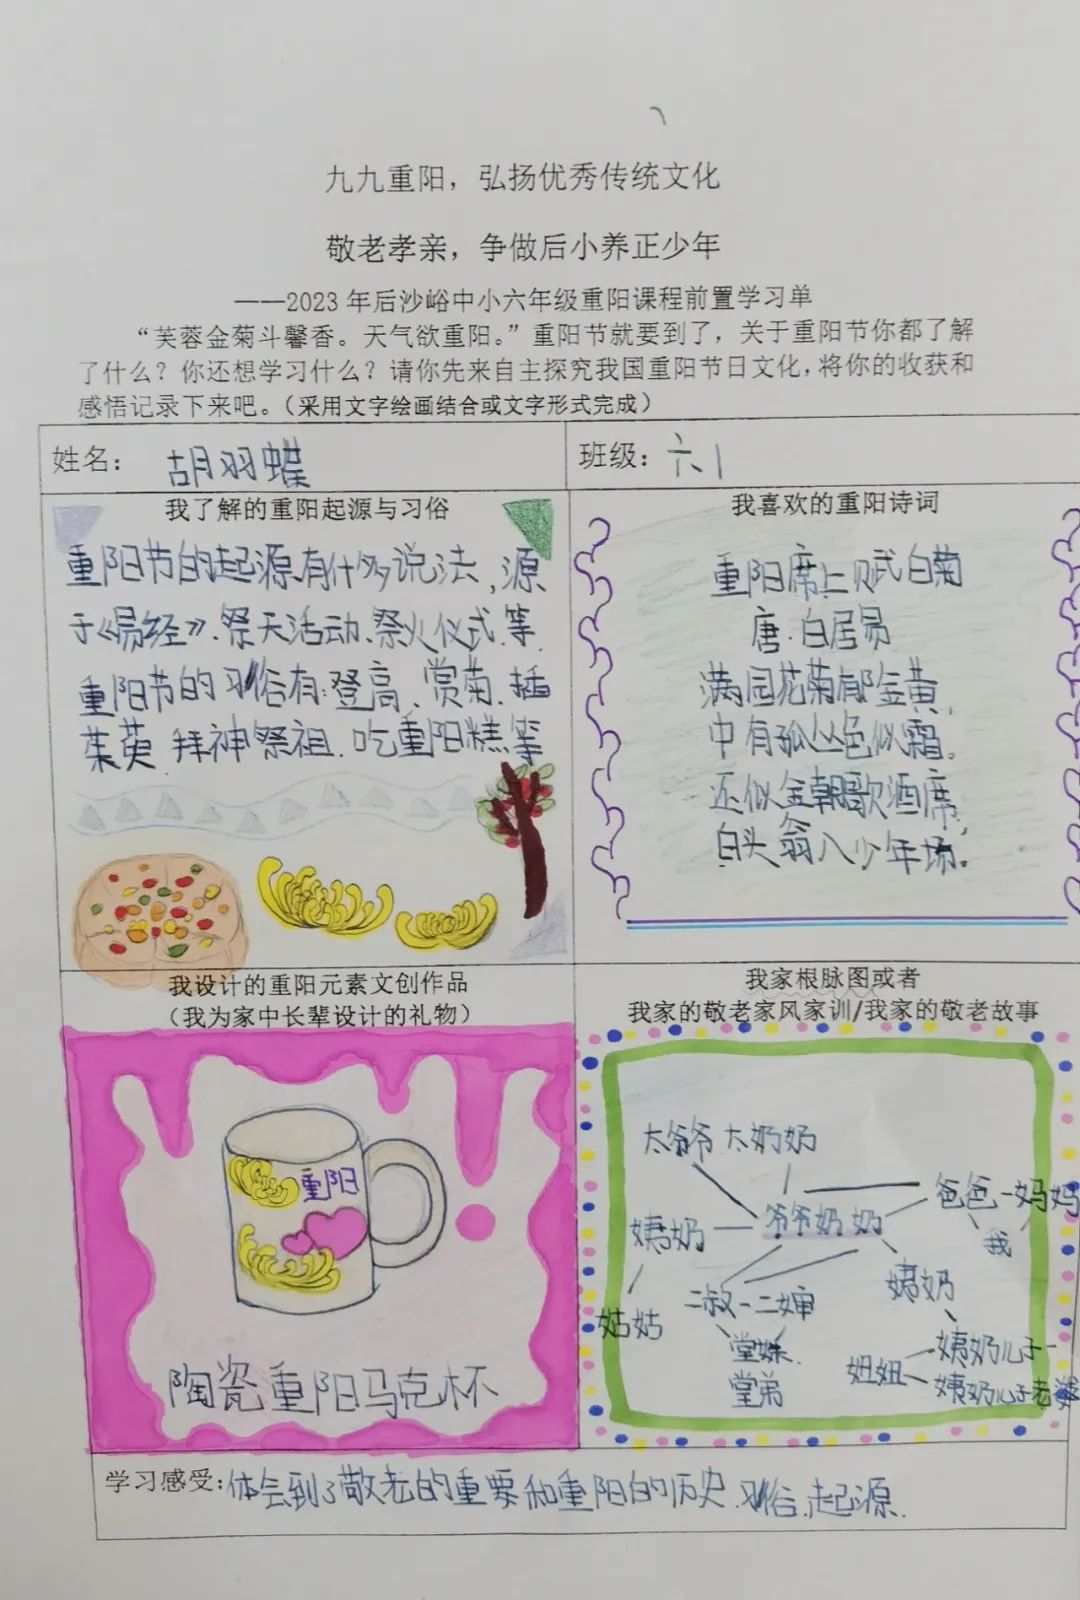 九九重阳，弘扬优秀传统文化
敬老孝亲，争做后小养正少年
——2023年后沙峪中小六年级重阳课程前置学习单
“芙蓉金菊斗馨香。天气欲重阳。”重阳节就要到了，关于重阳节你都了解
了什么？你还想学习什么？请你先来自主探究我国重阳节日文化，将你的收获和
感悟记录下来吧。（采用文字绘画结合或文字形式完成）
姓名： 胡羽蝶
班级：六1
我了解的重阳起源与习俗
重阳节的起源有什多说法，源
于《易经》、祭天活动、祭火仪式等
重阳节的习俗有：登高、赏菊、插
茱萸、拜神祭祖、吃重阳糕等
我喜欢的重阳诗词
重阳席上赋白菊
唐·白居易
满园花菊郁金黄，
中有孤丛色似霜。
还似今朝歌酒席，
白头翁入少年场。
我设计的重阳元素文创作品
（我为家中长辈设计的礼物）
重阳
陶瓷重阳马克杯
我家根脉图或者
我家的敬老家风家训/我家的敬老故事
太爷爷 太奶奶
爸爸-妈妈
姨奶
爷爷奶奶
我
姑姑
二叔-二婶
姨奶
堂妹
堂弟
妞妞
姨奶儿子
姨奶儿子老婆
学习感受：体会到了敬老的重要和重阳的历史、习俗、起源.